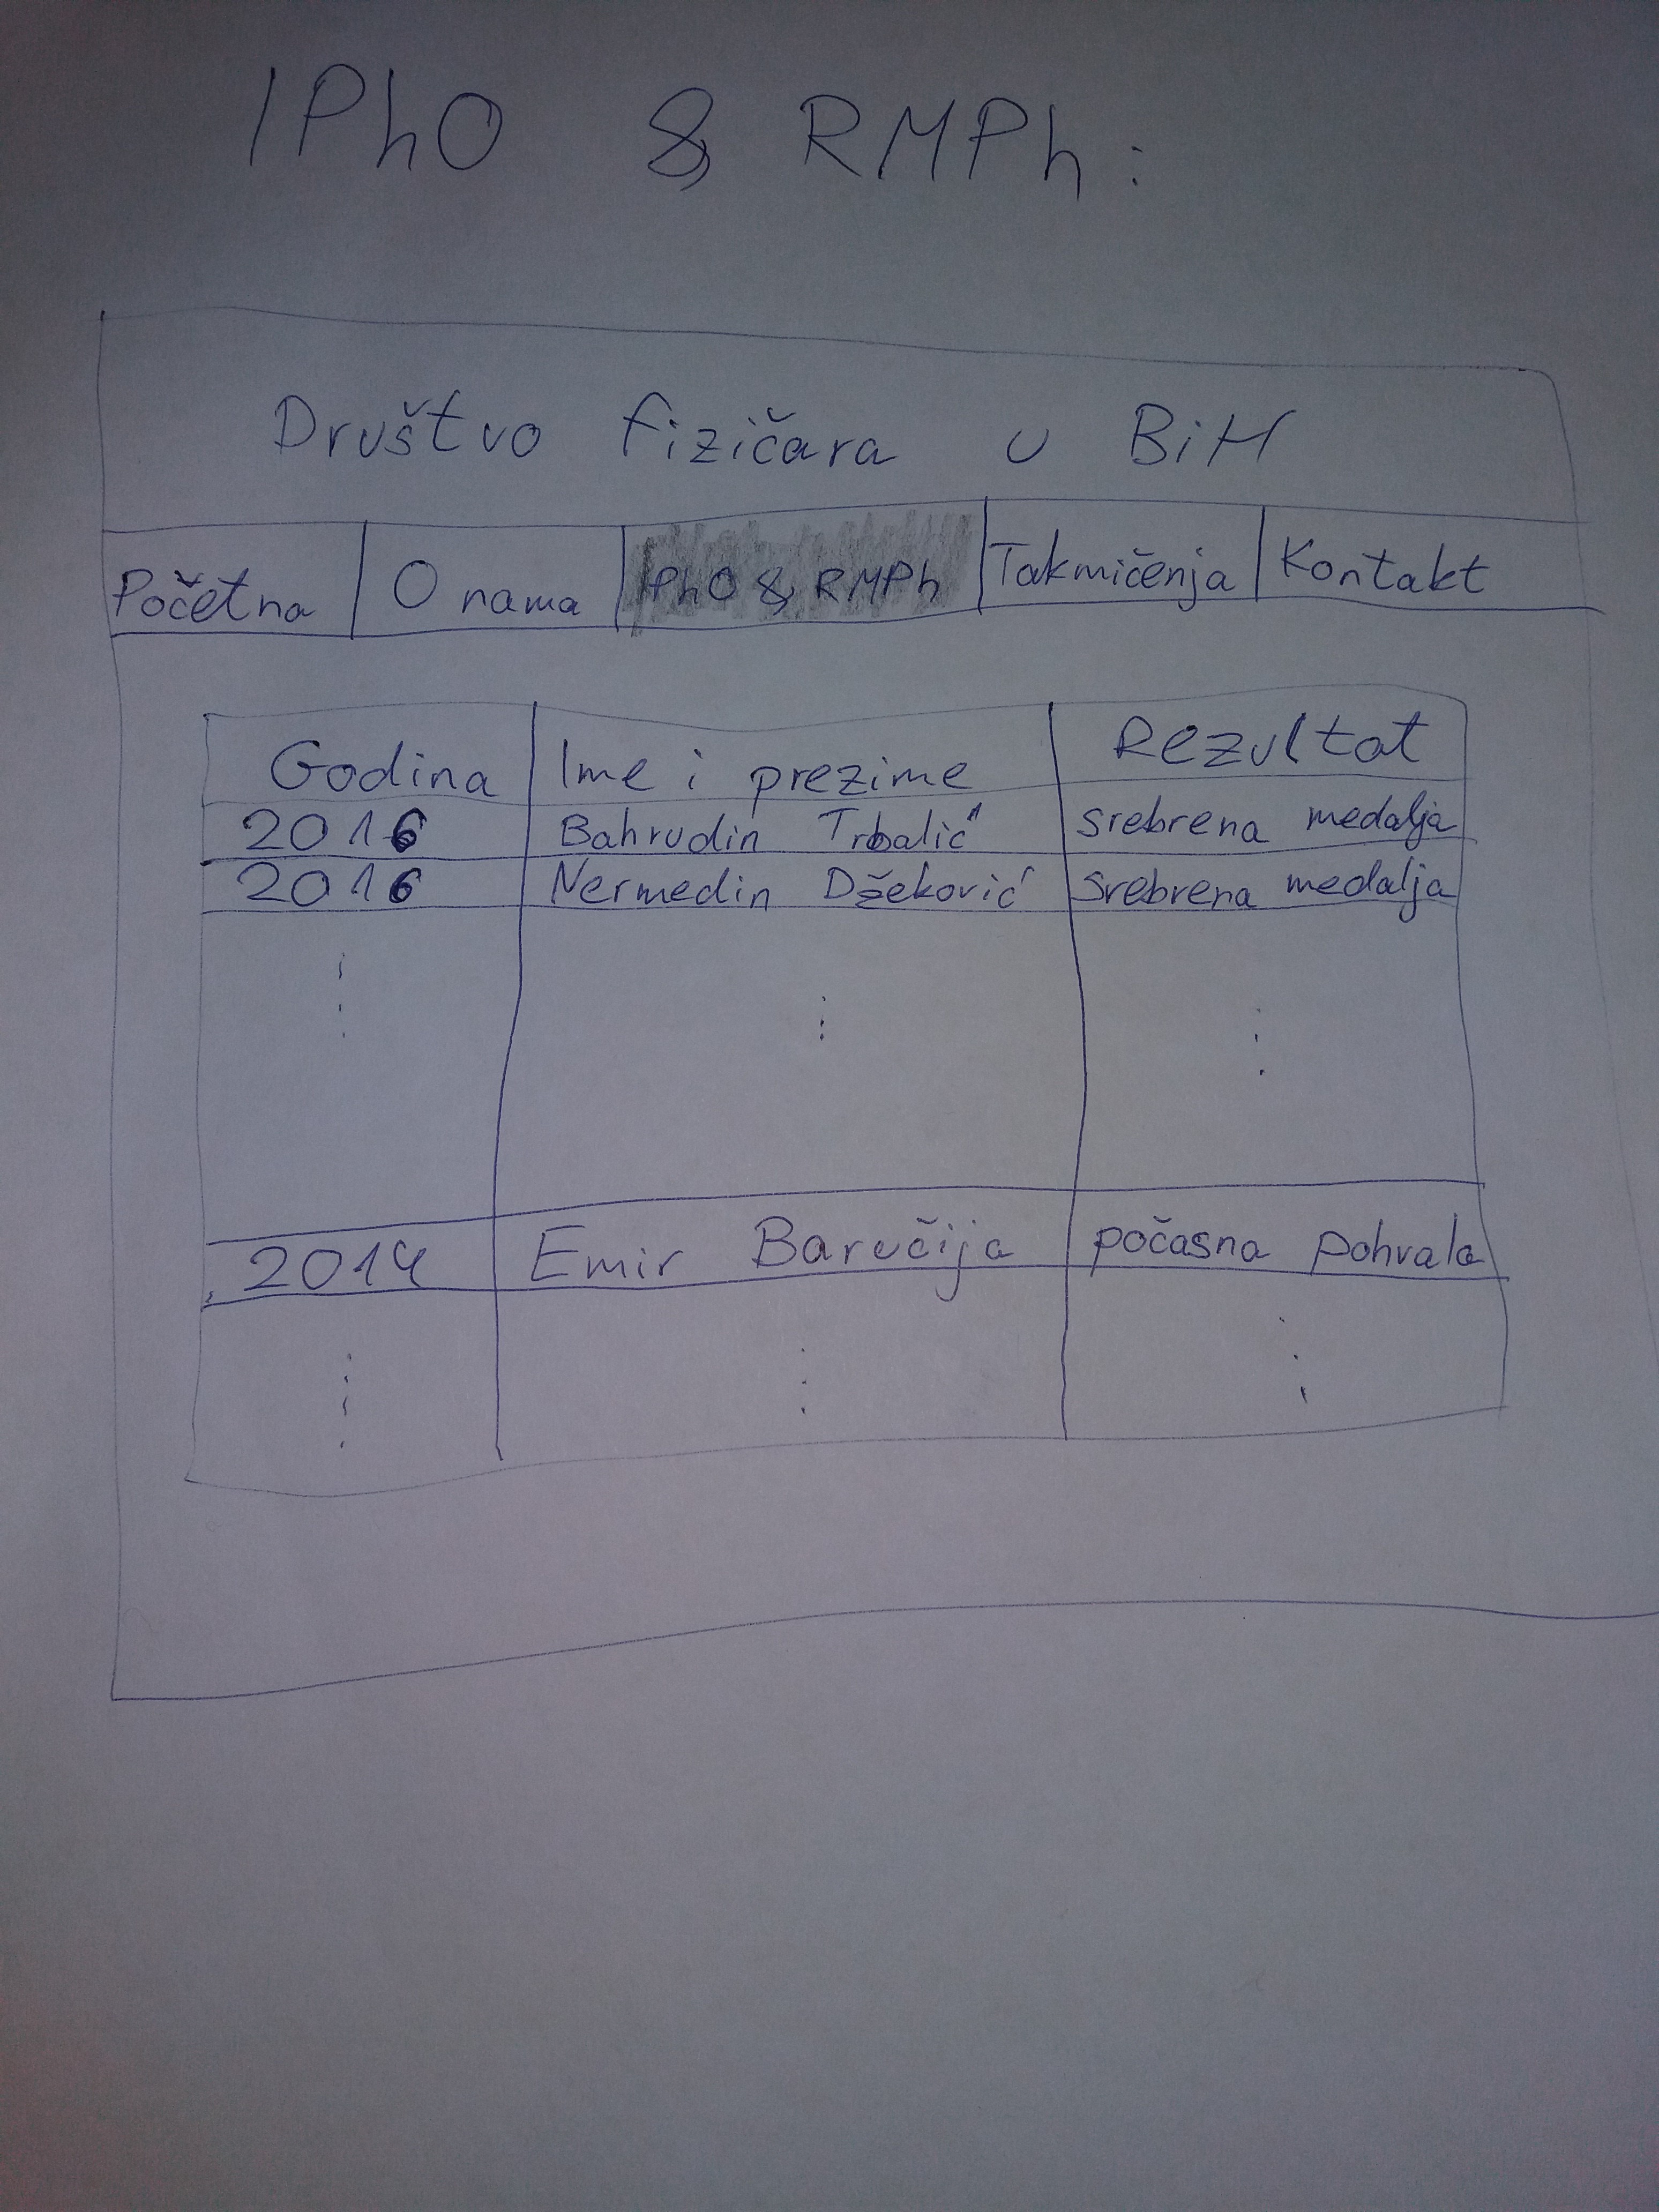 IPhO & RMPh:
Društvo fizičara u BiH
Početna O nama IPhO & RMPh Takmičenja Kontakt
Godina Ime i prezime Rezultat
2016 Bahrudin Trbalić srebrena medalja
2016 Nermedin Džeković srebrena medalja
2014 Emir Baručija počasna pohvala